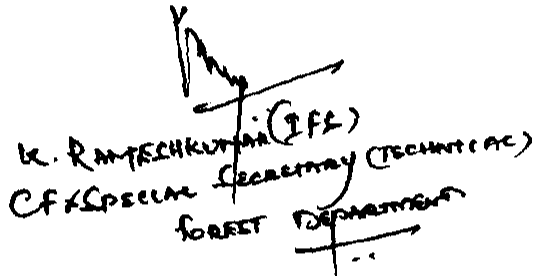 K. RAMESHKUMAR (IFS)
CF & SPECIAL SECRETARY (TECHNICAL)
FOREST DEPARTMENT